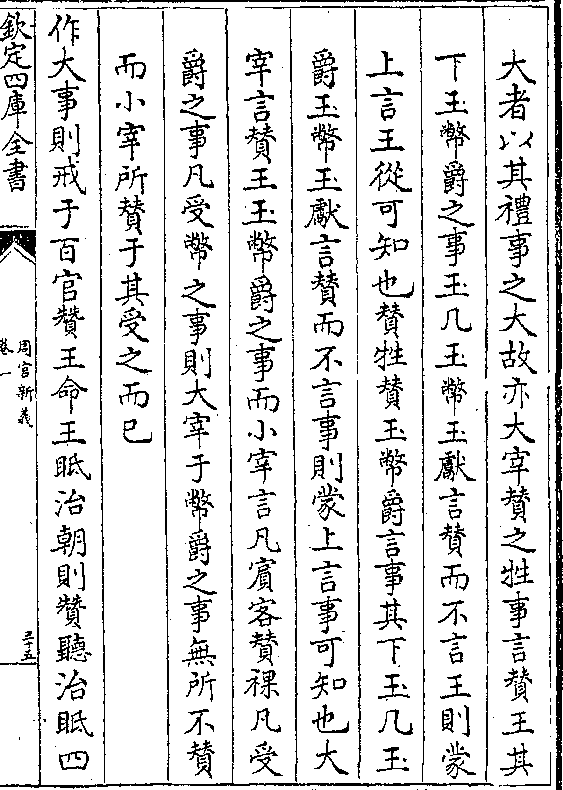 大者以其禮事之大故亦大宰贊之牲事言贊王其
下玉幣爵之事玉几玉幣玉獻言贊而不言王則蒙
上言王從可知也贊牲贊玉幣爵言事其下玉几玉
爵玉幣玉獻言贊而不言事則蒙上言事可知也大
宰言贊王玉幣爵之事而小宰言凡賓客贊祼凡受
爵之事凡受幣之事則大宰于幣爵之事無所不贊
而小宰所贊于其受之而已
作大事則戒于百官贊王命王眂治朝則贊聽治眂四
欽定四庫全書
周官新義
卷一
三十五